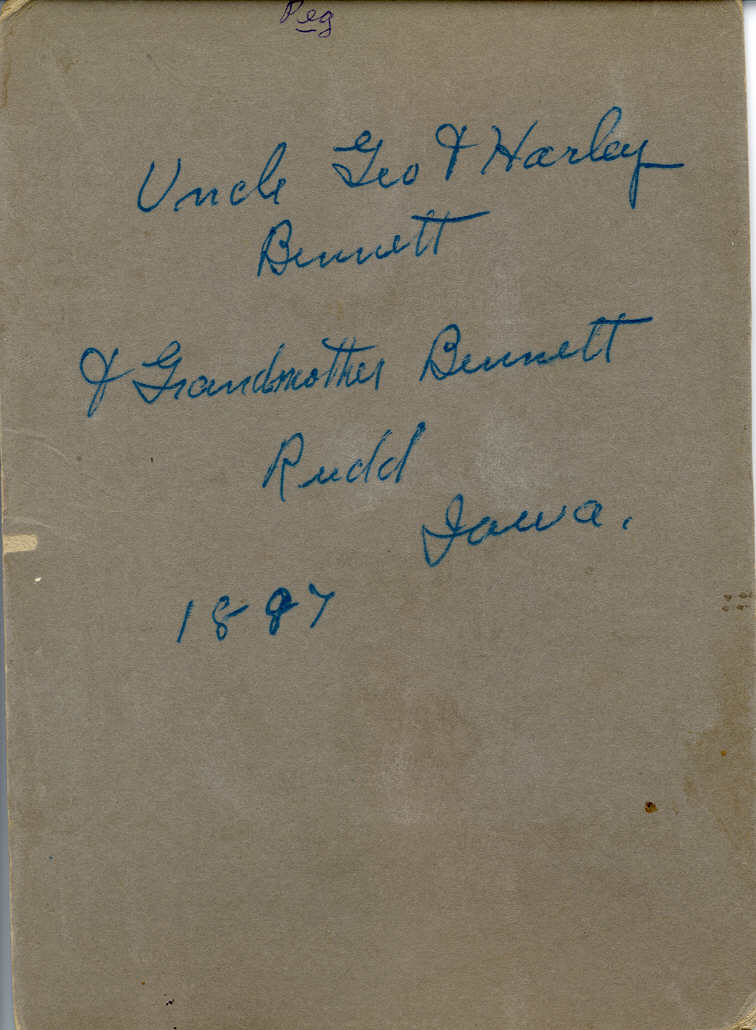 Peg
Uncle Geo & Harley
Bennett
& Grandmother Bennett
Rudd
Iowa.
1897